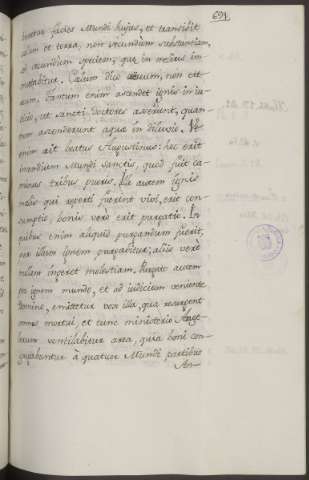 691
facies Mundi hujus, et transibit
celum et terra, non secundum substantiam,
sed secundum speciem, quæ in melius im-
mutabitur. Cælum dico aereum, non eth-
reum, tantum enim ascendet ignis in ju-
dicio, ut Sancti Doctores asserunt, quan-
tum ascenderunt aquæ in diluvio. Ut
enim ait beatus Augustinus: hoc erit
incendium Mundi Sanctis, quod fuit ca-
minus tribus pueris. Ille autem ignis
malis qui reperti fuerint vivi, erit con-
sumptio, bonis vero erit purgatio. In
quibus enim aliquid purgandum fuerit,
per illum ignem purgabitur; aliis vero
nullam inferet molestiam. Purgato autem
per ignem mundo, et ad judicium veniente
Domino, emittetur vox illa, qua resurgent
omnes mortui, et tunc ministerio Angelo-
rum ventilabitur area, quia boni con-
gregabuntur à quatuor Mundi partibus
An-